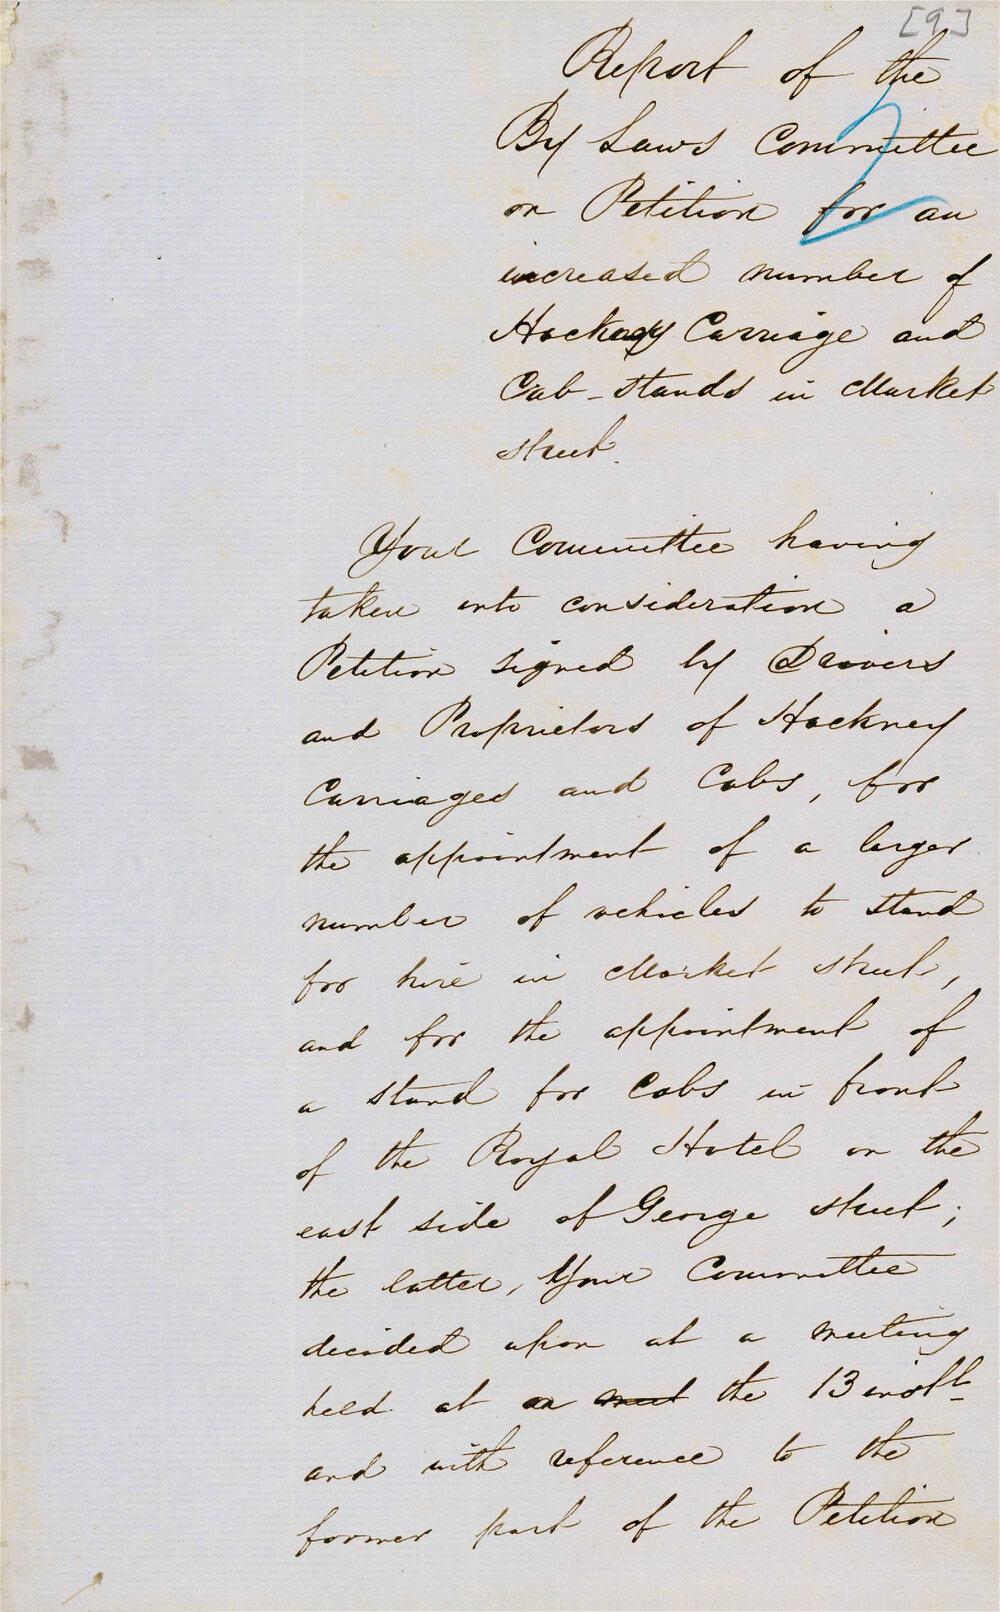 [9]
Report of the
By Laws Committee
on Petition for an
increased number of
Hackney Carriage and
Cab-stands in Market
street.
Your Committee having
taken into consideration a
Petition signed by Drivers
and Proprietors of Hackney
Carriages and Cabs, for
the appointment of a larger
number of vehicles to stand
for hire in Market street,
and for the appointment of
a stand for Cabs in front
of the Royal Hotel on the
east side of George street;
the latter, Your Committee
decided upon at a meeting
held at on meet the 13 instt
and with reference to the
former part of the Petition